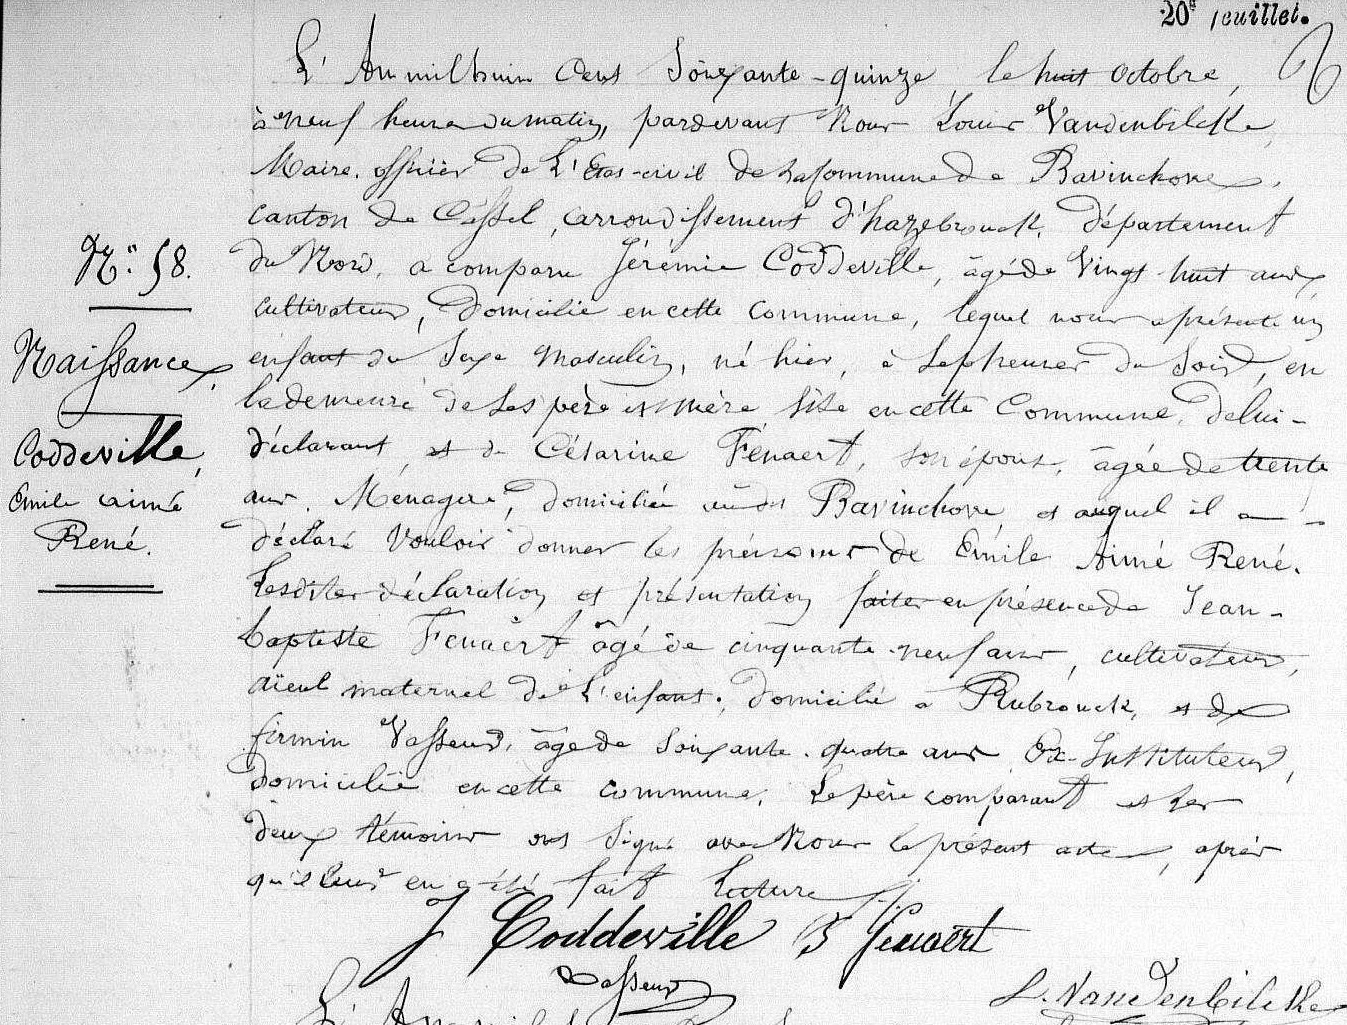 20e feuillet.
L'An mil huit Cent Soixante-quinze, le huit Octobre,
à neuf heures du matin, pardevant Nous Louis Vandenbilcke,
Maire, officier de L'Etat-civil de la Commune de Bavinchove,
canton de Cassel, arrondissement d'hazebrouck, département
du Nord, a comparu Jérémie Coddeville, âgé de Vingt huit ans,
cultivateur, domicilié en cette commune, lequel nous a présenté un
enfant du Sexe masculin, né hier, à Sept heures du Soir, en
la demeure de Ses père et mère Sise en cette Commune, de lui-
déclarant, et de Césarine Fénaert, son épouse, âgée de trente
ans, Ménagère, domiciliée audit Bavinchove, et auquel il a -
déclaré Vouloir donner les prénoms de Emile Aimé René.
Lesdites déclaration et présentation faites en présence de Jean-
baptiste Fenaërt âgé de cinquante-neuf ans, cultivateur,
aïeul maternel de L'enfant, domicilié à Rubrouck, et de
firmin Vasseur, âgé de Soixante-quatre ans Ex-Instituteur,
domicilié en cette commune. Le père comparant et les
deux témoins ont Signé avec Nous le présent acte, après
qu'il leur en a été fait Lecture
N.o 58.
Naissance,
Coddeville,
Emile Aimé
René.
J Coddeville B Fenaërt
Vasseur
L. Vandenbilcke
L'An mil